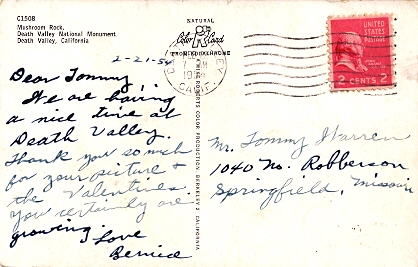 C1508
Mushroom Rock,
Death Valley National Monument
Death Valley, California
2-21-54
Dear Tommy
We are having
a nice time at
Death Valley.
Thank you so much
for your picture +
the Valentines.
You certainly are
growing.
Love
Bernice
NATURAL
Color Card
CALIF.
MIKE ROBERTS COLOR PRODUCTIONS, BERKELEY 2, CALIFORNIA
UNITED
STATES
POSTAGE
2 CENTS 2
Mr. Tommy Warren
1040 No. Robberson
Springfield, Missouri